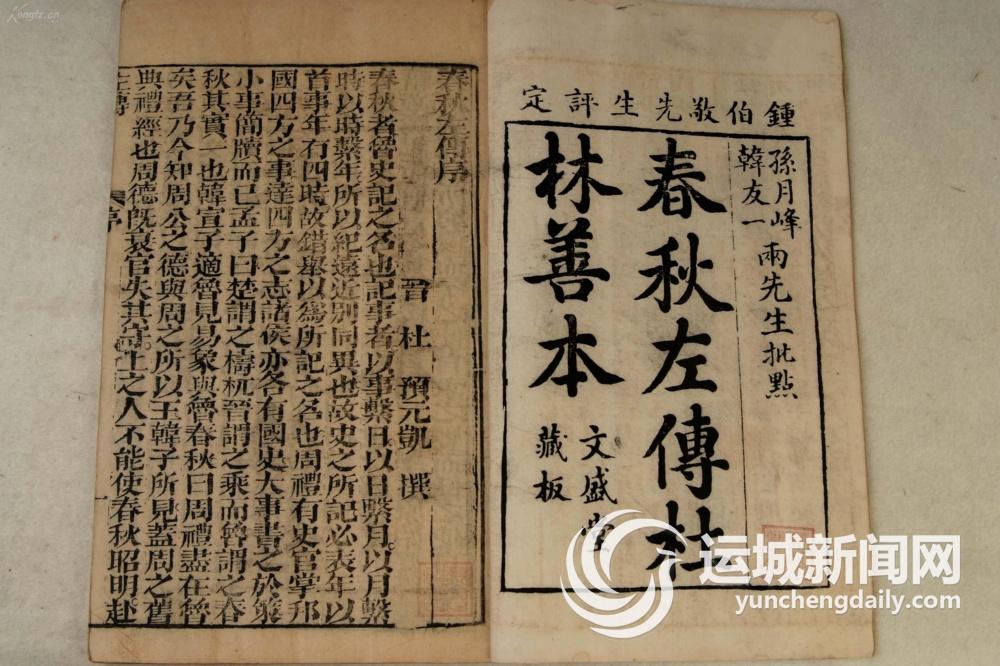 鍾伯敬先生評定
孫月峰
韓友一
兩先生批點
春秋左傳杜
林善本
文盛堂
藏板
春秋左傳序
晉 杜 預元凱 撰
春秋者魯史記之名也記事者以事繫日以日繫月以月繫
時以時繫年所以紀遠近別同異也故史之所記必表年以
首事年有四時故錯舉以爲所記之名也周禮有史官掌邦
國四方之事達四方之志諸侯亦各有國史大事書之於策
小事簡牘而已孟子曰楚謂之檮杌晉謂之乘而魯謂之春
秋其實一也韓宣子適魯見易象與魯春秋曰周禮盡在魯
矣吾乃今知周公之德與周之所以王韓子所見蓋周之舊
典禮經也周德旣衰官失其守上之人不能使春秋昭明赴
左傳 序 一
运城新闻网
yunchengdaily.com
Kongfz.cn